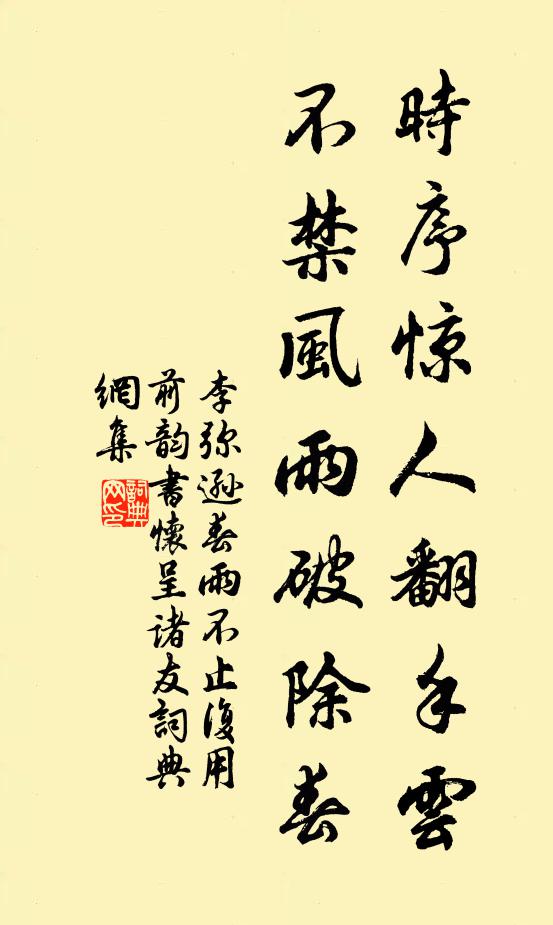 時序惊人翻手雲
不禁風雨破除春
李弥遜春雨不止復用
前韵書懷呈诸友詞典
網集
詞典
网印